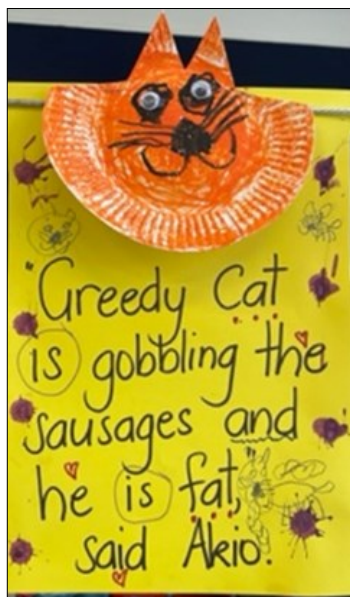 "Greedy Cat
is gobbling the
sausages and
he is fat,
said Akio.